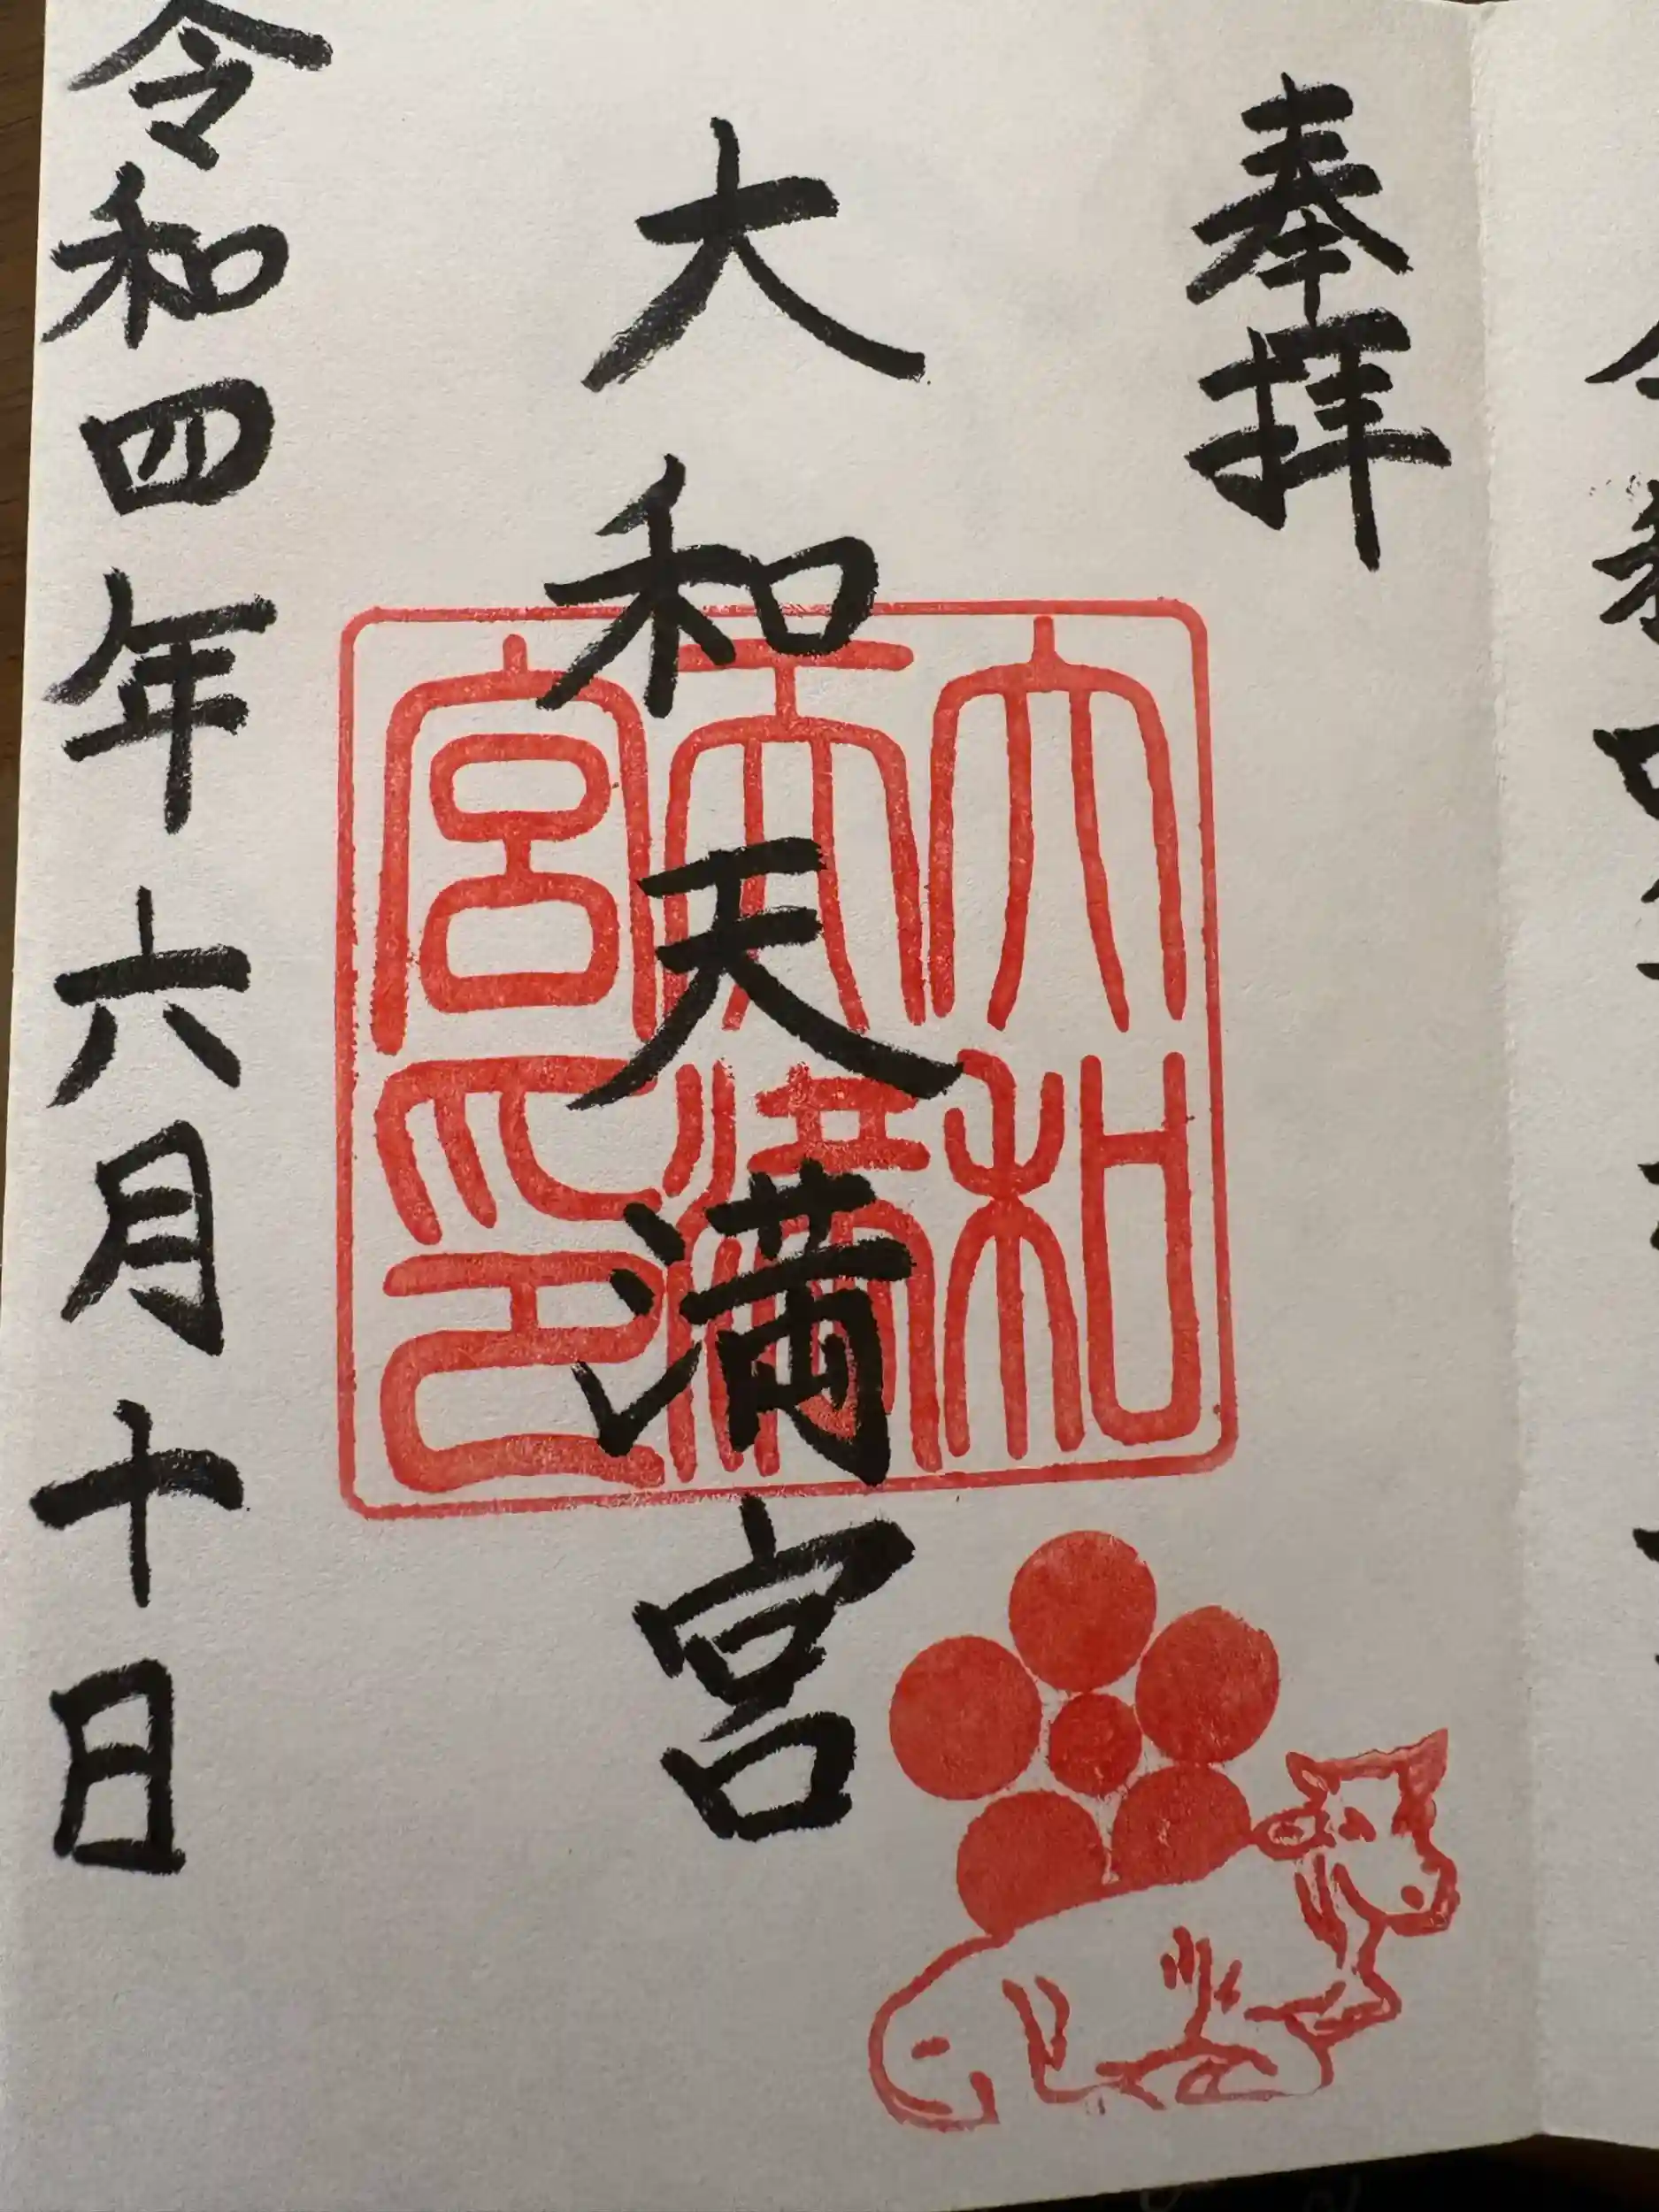 奉拝
大和天満宮
大和
天満
宮印
令和四年六月十日